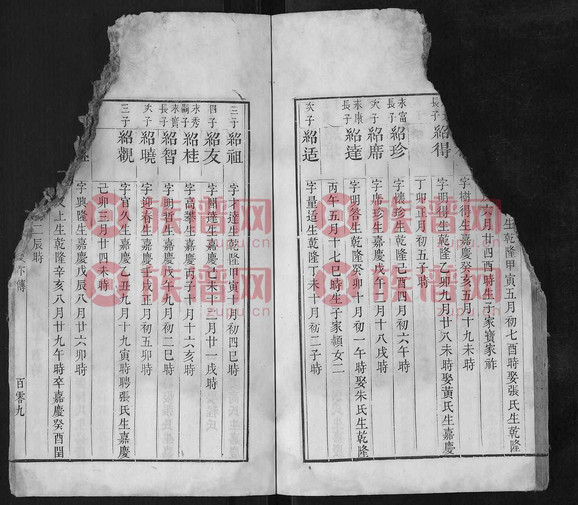 生乾隆甲寅五月初七酉時娶張氏生乾隆
月廿四酉時生子家寶家祚
字樹得生嘉慶癸亥五月十九未時
長子
紹得
字明得生乾隆乙卯九月廿八未時娶黃氏生嘉慶
丁卯正月初五子時
來富長子
紹珍
字懷珍生嘉慶己酉四月初六午時
次子
紹席
字席珍生嘉慶戊午十月十八戌時
來康長子
紹達
字明答生乾隆癸卯十月初一午時娶朱氏生乾隆
丙午五月十七巳時生子家頓女二
次子
紹适
字量道生乾隆丁未十月初二子時
三子
紹祖
字才達生乾隆甲寅十月初四巳時
四子
紹友
字開達生嘉慶己未三月廿一戌時
來秀嗣子
紹桂
字高攀生嘉慶丙子十月十六亥時
來實長子
紹智
字明哲生嘉慶戊午九月初二巳時
次子
紹曉
字迎春生嘉慶壬戌正月初五卯時
三子
紹觀
字官久生嘉慶乙丑九月十九寅時聘張氏生嘉慶
己卯三月廿四未時
字興隆生嘉慶戊辰八月廿六卯時
上生乾隆辛亥八月廿九午時卒嘉慶癸酉閏
二辰時
百零九